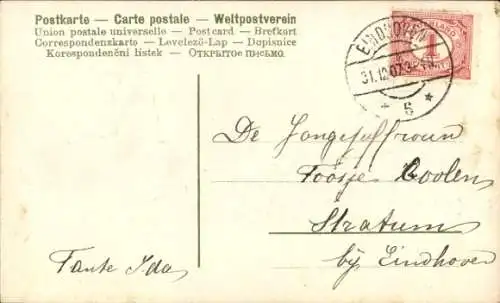 Postkarte – Carte postale – Weltpostverein
Union postale universelle – Postcard – Brefkort
Correspondenzkarto – Levelező-Lap – Dopisnice
Korespondenční lístek – Открытое письмо.
EINDHOVEN
31.12.07
5
1
De Jongejuffrouw
Toosje Coolen
Stratum
bij Eindhoven
Tante Ida